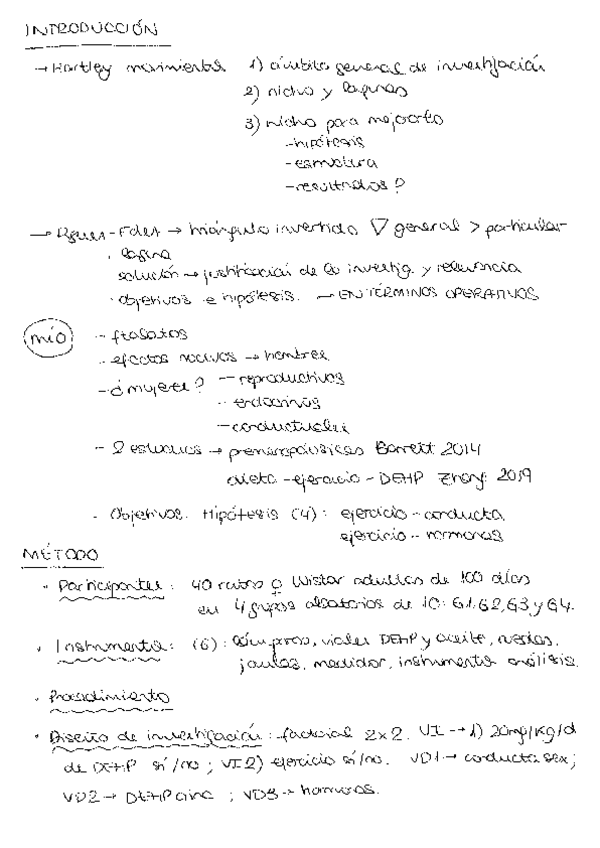 INTRODUCCIÓN
→ Hartley movimientos 1) ámbito general de investigación
2) nicho y lagunas
3) nicho para mejorarlo
- hipótesis
- estructura
- resultados?
→ -Fdez → triángulo invertido ▽ general > particular
· laguna
solución → justificación de la investig. y relevancia
· objetivos e hipótesis. → EN TÉRMINOS OPERATIVOS
mío
- ftalatos
- efectos nocivos → hombres
- ¿mujeres? -- reproductivos
-- endocrinos
- conductuales
- 2 estudios → premenopáusicas Barrett 2014
dieta - ejercicio - DEHP Zhang: 2019
- Objetivos. Hipótesis (4): ejercicio - conducta
ejercicio - hormonas
MÉTODO
· Participantes: 40 ratas ♀ Wistar adultas de 100 días
en 4 grupos aleatorios de 10: G1, G2, G3 y G4.
· Instrumentos: (6): viales DEHP y aceite, ruedas,
jaulas, medidor, instrumentos análisis.
· Procedimiento
· Diseño de investigación: factorial 2x2. VI → 1) 20mg/kg/d
de DEHP sí/no; VI2) ejercicio sí/no. VD1 → conducta sex;
VD2 → DEHP orina; VD3 → hormonas.